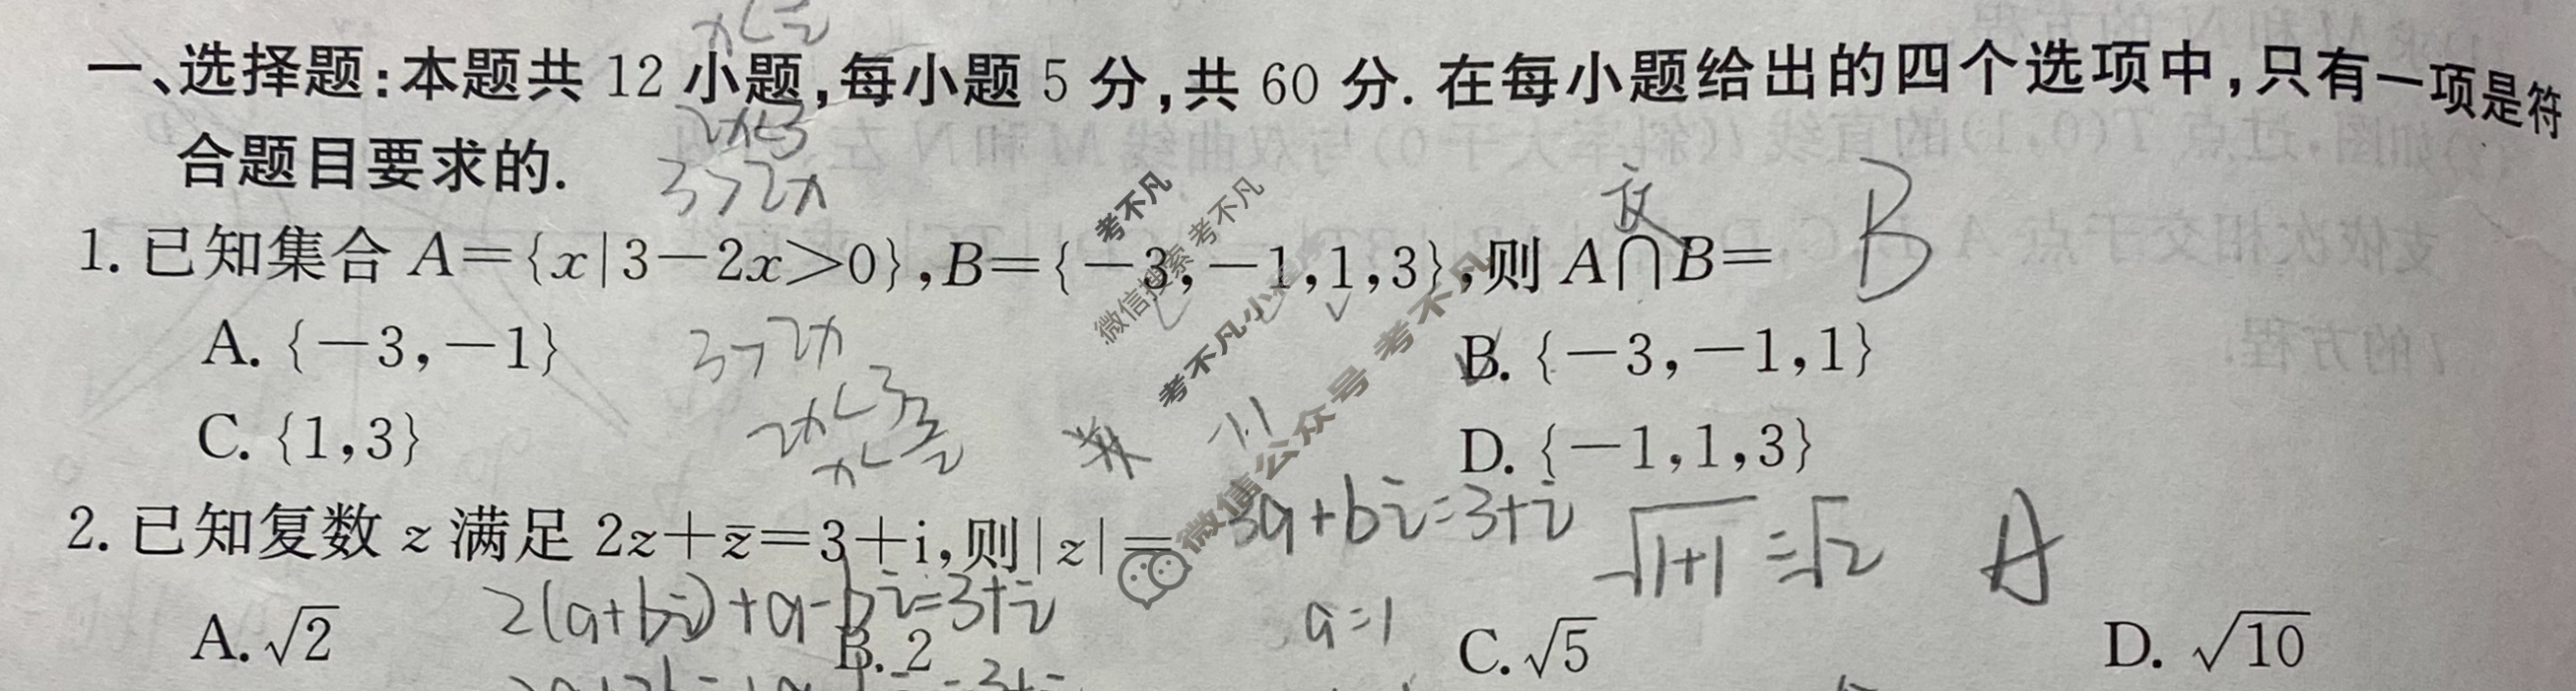 x<
一、选择题:本题共 12 小题,每小题 5 分,共 60 分. 在每小题给出的四个选项中,只有一项是符
2x<3
合题目要求的.
3>2x
交
1. 已知集合 A={x|3-2x>0},B={-3,-1,1,3},则 A∩B= B
A. {-3,-1}
3>2x
B. {-3,-1,1}
2x<3
C. {1,3}
x<3/2
D. {-1,1,3}
2. 已知复数 z 满足 2z+z̄=3+i,则|z|=
3a+bi=3+i
√1+1=√2
A
2(a+bi)+a-bi=3+i
a=1
A. √2 B. 2 C. √5 D. √10
考不凡
微信搜索 考不凡
考不凡小
微信公众号 考不凡